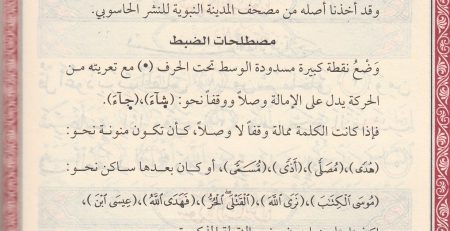 وقد أخذنا أصله من مصحف المدينة النبوية للنشر الحاسوبي.
مصطلحات الضبط
وَضْعُ نقطة كبيرة مسدودة الوسط تحت الحرف (•) مع تعريته من
الحركة يدل على الإمالة وصلاً ووقفاً نحو: (شَآءَ)، (جَآءَ).
فإذا كانت الكلمة ممالة وقفاً لا وصلاً، كأن تكون منونة نحو:
(هُدًى)، (مُصَلًّى)، (أَذًى)، (مُسَمًّى)، أو كان بعدها ساكن نحو:
(مُوسَى ٱلْكِتَٰبَ)، (نَرَى ٱللَّهَ)، (ٱلْقَتْلَى ٱلْحُرُّ)، (فَهَدَى ٱللَّهُ)، (عِيسَى ٱبْنَ)،